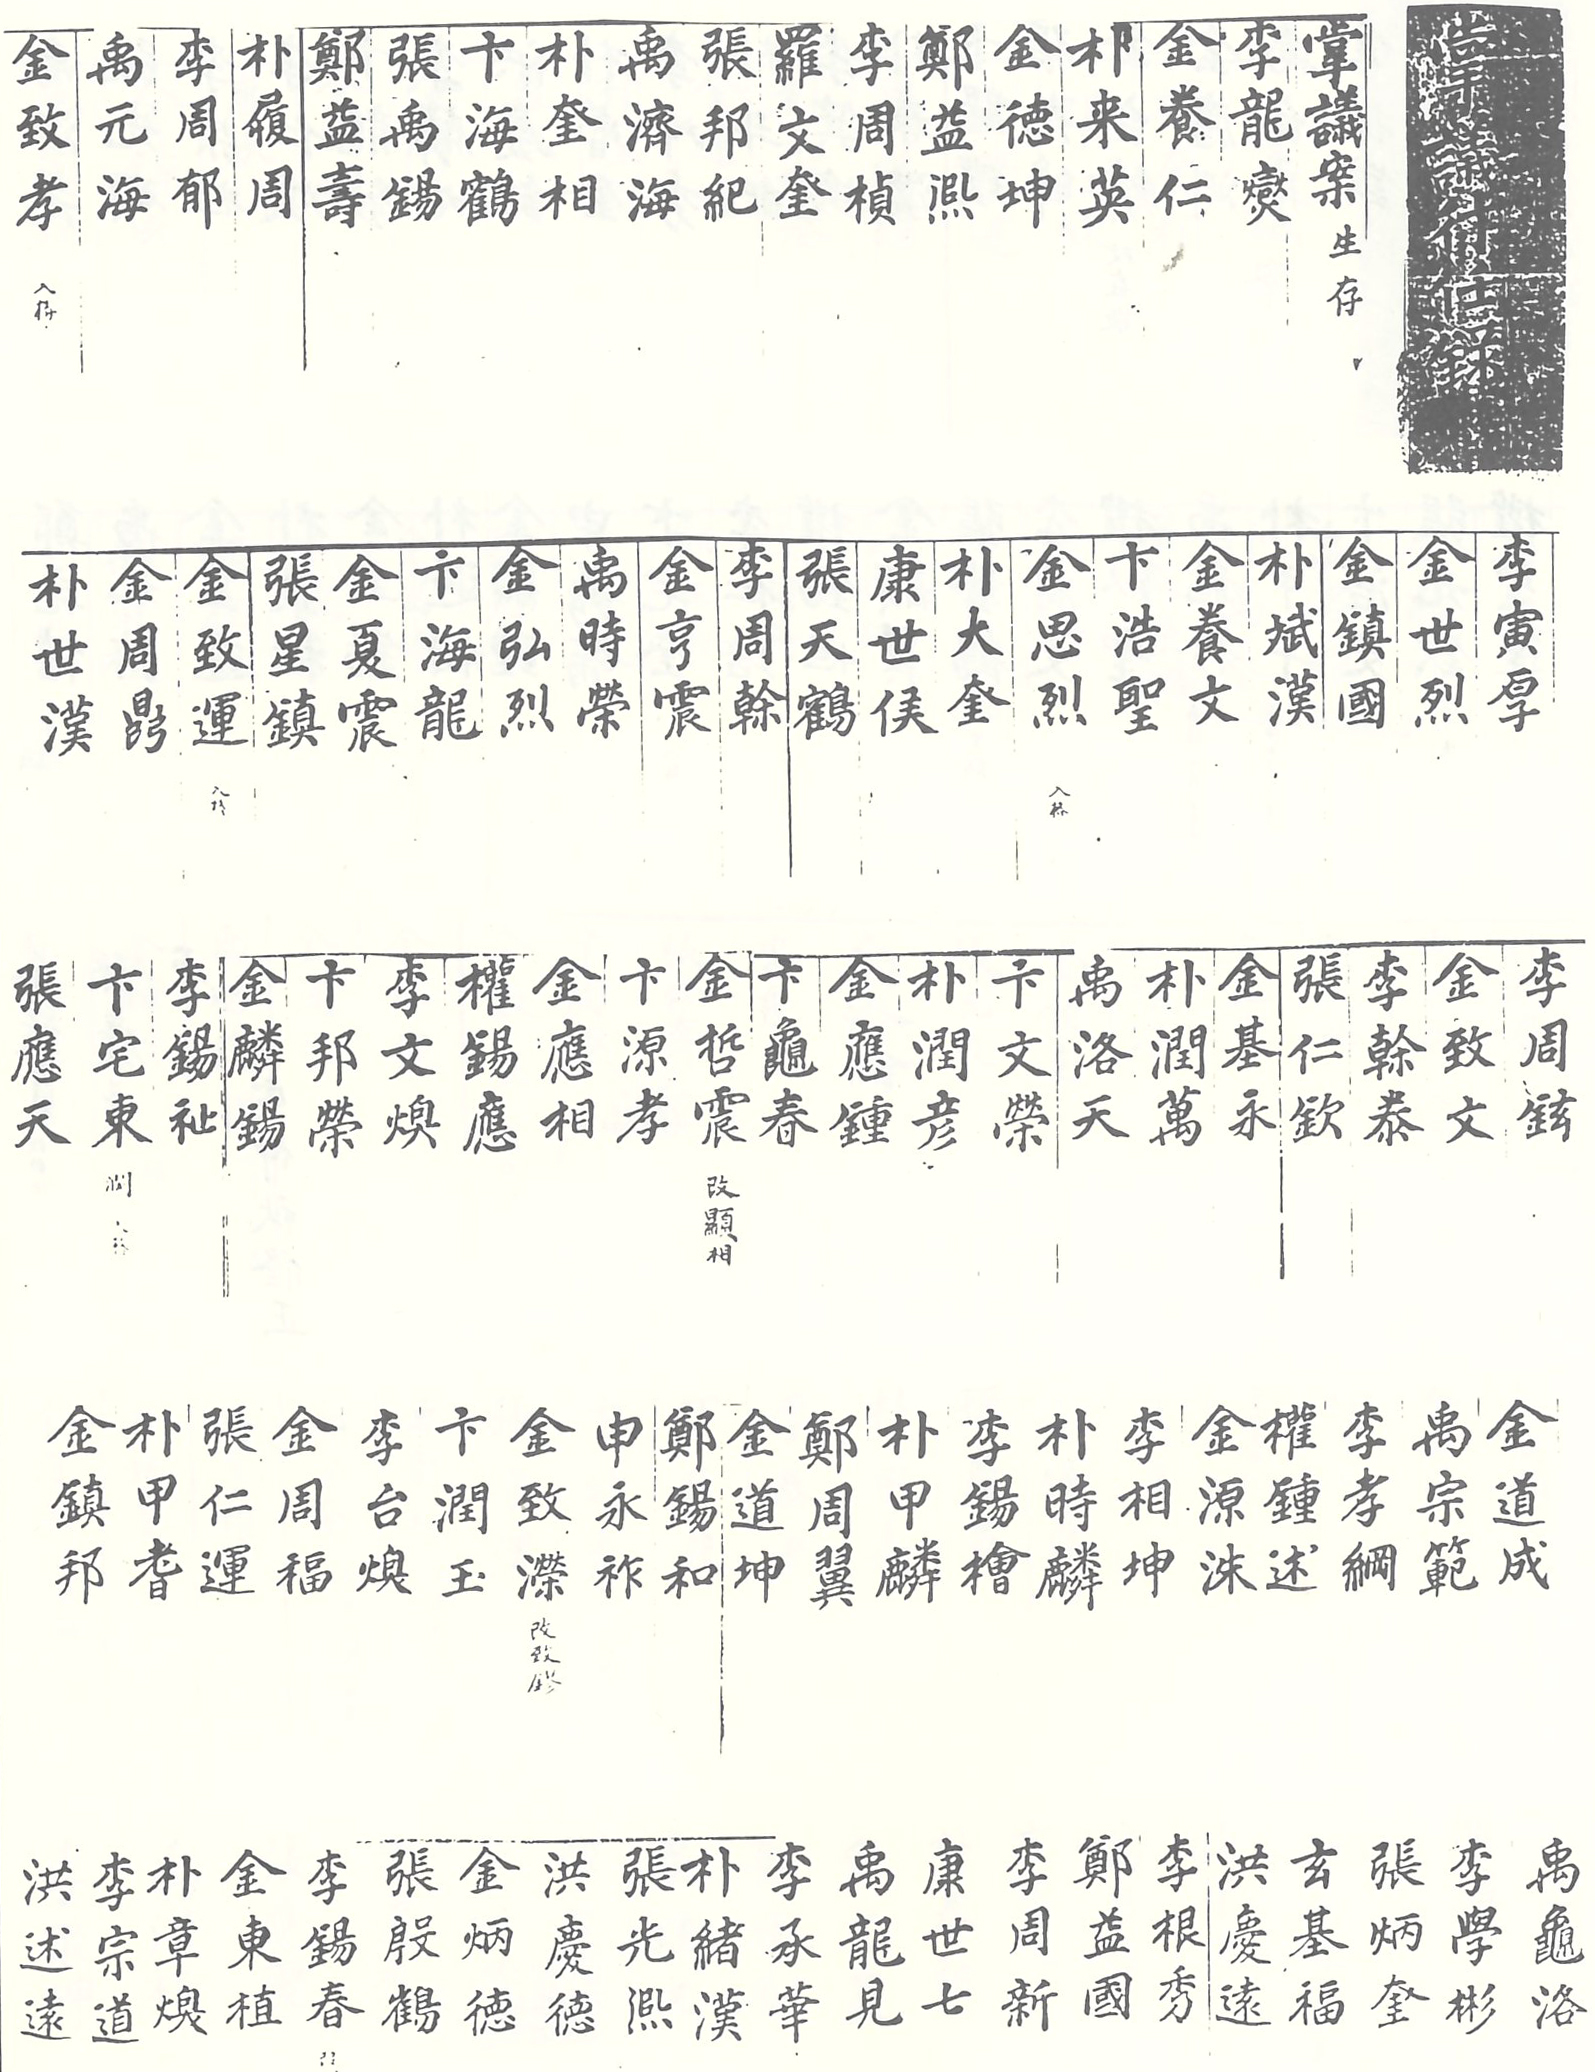 掌議案 生存
李龍爕
金養仁
朴来英
金德坤
鄭益凞
李周楨
羅文奎
張邦紀
禹濟海
朴奎相
卞海鶴
張禹錫
鄭益壽
朴履周
李周郁
禹元海
金致孝
李寅厚
金世烈
金鎮國
朴斌漢
金養文
卞浩聖
金思烈
朴大奎
康世侯
張天鶴
李周榦
金亨震
禹時榮
金弘烈
卞海龍
金夏震
張星鎮
金致運
金周鼎
朴世漢
李周鉉
金致文
李榦泰
張仁欽
金基永
朴潤萬
禹洛天
卞文榮
朴潤彦
金應鍾
卞龜春
金哲震 改顯相
卞源孝
金應相
權錫應
李文煥
卞邦榮
金麟錫
李錫祉
卞宅東
張應天
金道成
禹宗範
李孝綱
權鍾述
金源洙
李相坤
朴時麟
李錫檜
朴甲麟
鄭周翼
金道坤
鄭錫和
申永祚
金致濚
卞潤玉
李台煥
金周福
張仁運
朴甲耆
金鎮邦
禹龜洛
李學彬
張炳奎
玄基福
洪慶遠
李根秀
鄭益國
李周新
康世七
禹龍見
李承華
朴緒漢
張光凞
洪慶德
金炳德
張殷鶴
李錫春
金東植
朴章煥
李宗道
洪述遠